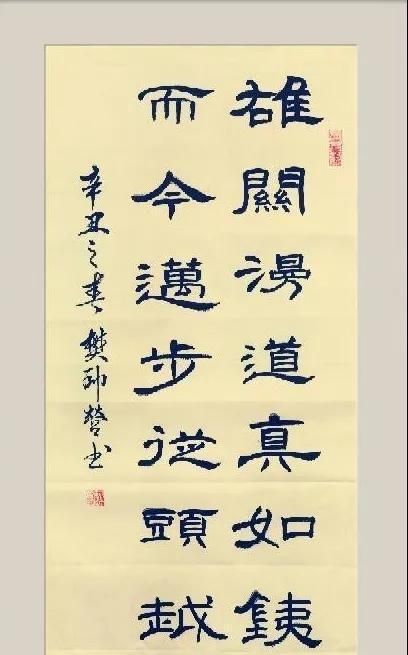 雄關漫道真如鉄
而今邁步從頭越
辛丑之春樊沛營书